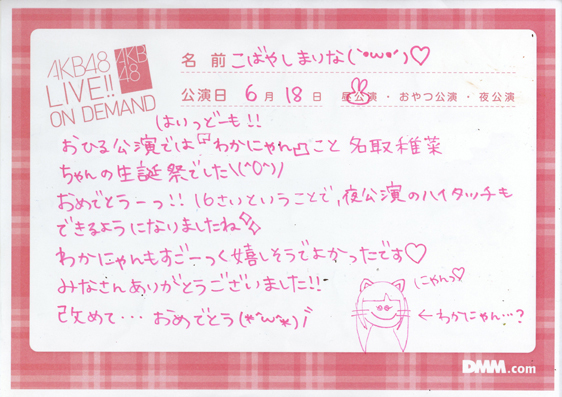 AKB48
LIVE!!
ON DEMAND
AKB
48
名前 こばやしまりな(`•ω•´)♡
公演日 6月18日 昼公演・おやつ公演・夜公演
はいっどーも!!
おひる公演では『わかにゃん』こと名取稚菜
ちゃんの生誕祭でした\(^O^)/
おめでとうーっ!! 16さいということで、夜公演のハイタッチも
できるようになりましたね
わかにゃんもすごーっく嬉しそうでよかったです♡
みなさんありがとうございました!!
改めて… おめでとう(*^ω^*)ノ
にゃんっ♡
←わかにゃん…?
DMM.com